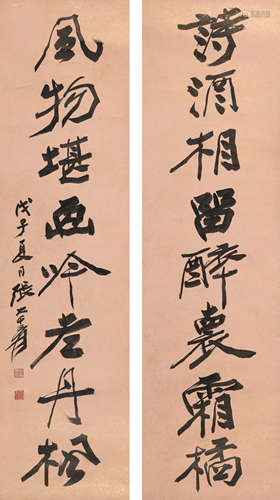 詩酒相留醉裏霜橘
風物堪畫吟老丹楓
戊子夏日張大千爰